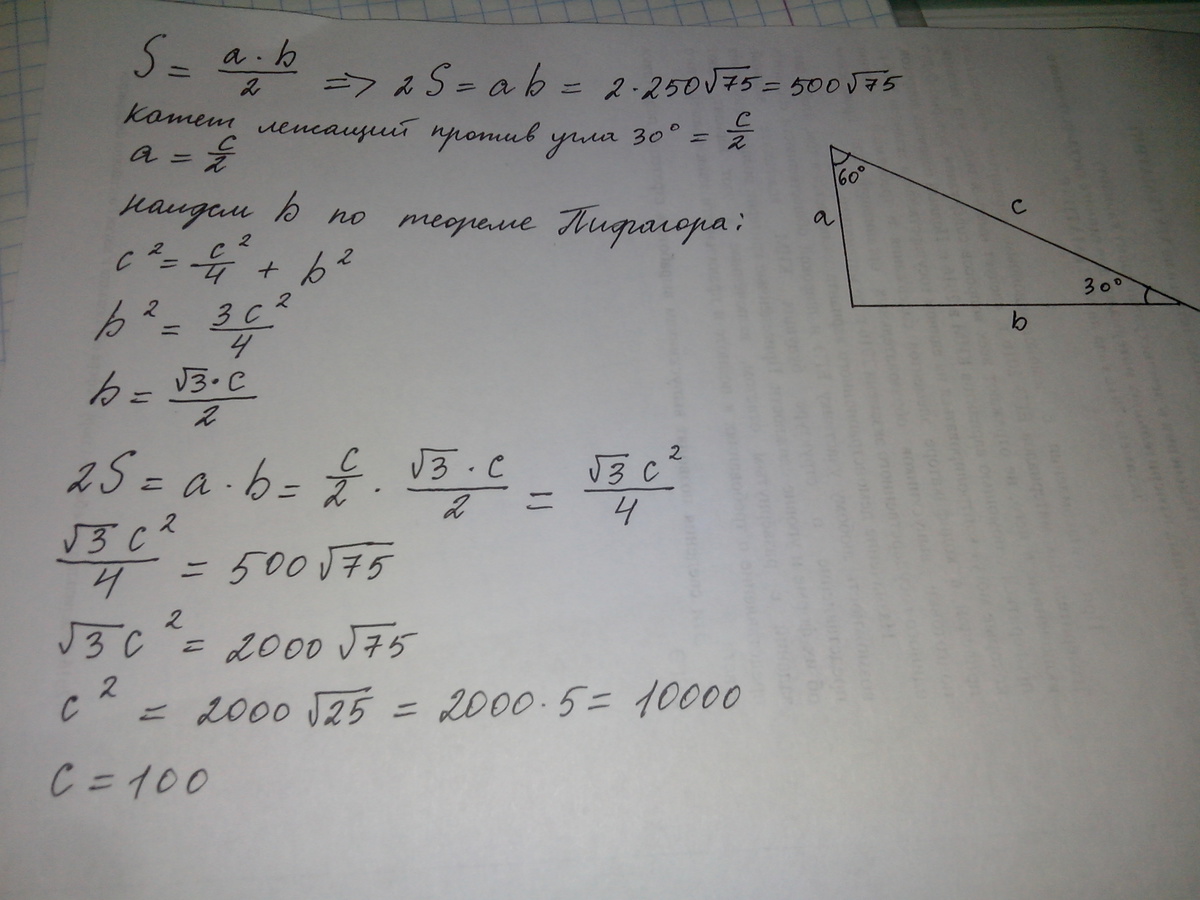 S = a · b / 2 => 2S = ab = 2·250√75 = 500√75
катет лежащий против угла 30° = c/2
a = c/2
найдем b по теореме Пифагора:
c² = c²/4 + b²
b² = 3c²/4
b = √3·c/2
2S = a · b = c/2 · √3 · c/2 = √3 c²/4
√3 c²/4 = 500√75
√3 c² = 2000√75
c² = 2000√25 = 2000·5 = 10000
c = 100
60°
a
c
30°
b